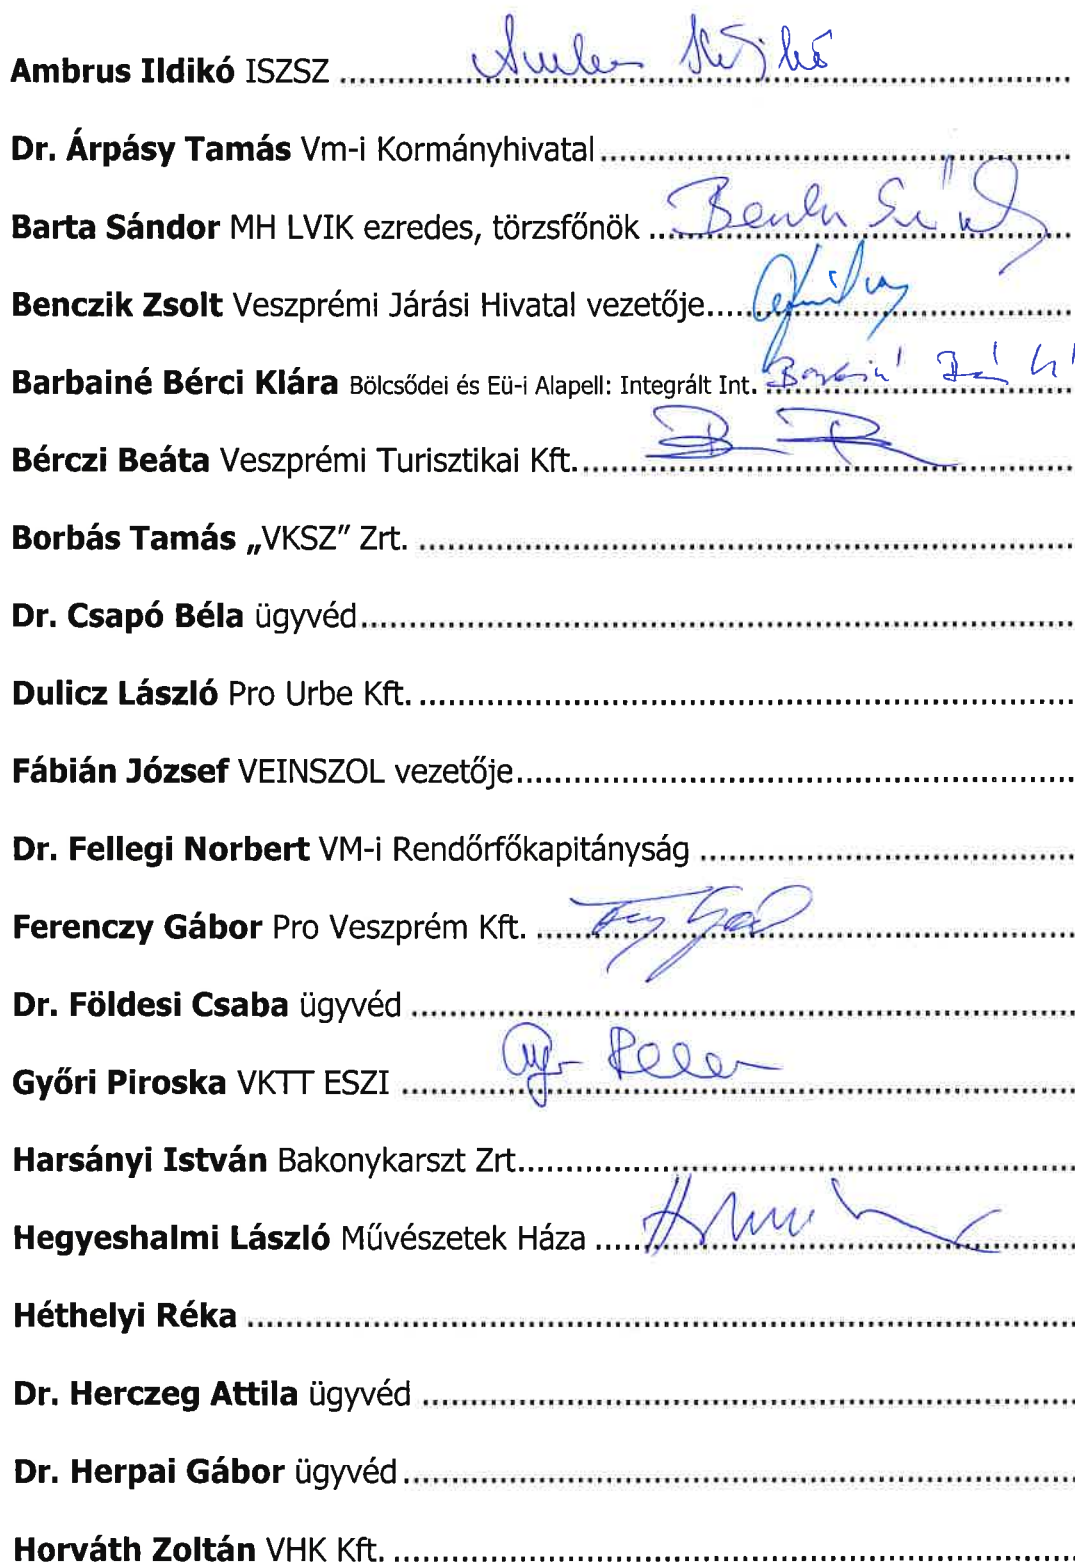 Ambrus Ildikó ISZSZ ........ Ambrus Ildikó
Dr. Árpásy Tamás Vm-i Kormányhivatal ........
Barta Sándor MH LVIK ezredes, törzsfőnök ........ Barta Sándor
Benczik Zsolt Veszprémi Járási Hivatal vezetője........
Barbainé Bérci Klára Bölcsődei és Eü-i Alapell: Integrált Int. ........
Bérczi Beáta Veszprémi Turisztikai Kft. ........
Borbás Tamás „VKSZ” Zrt. ........
Dr. Csapó Béla ügyvéd ........
Dulicz László Pro Urbe Kft. ........
Fábián József VEINSZOL vezetője ........
Dr. Fellegi Norbert VM-i Rendőrfőkapitányság ........
Ferenczy Gábor Pro Veszprém Kft. ........
Dr. Földesi Csaba ügyvéd ........
Győri Piroska VKTT ESZI ........
Harsányi István Bakonykarszt Zrt. ........
Hegyeshalmi László Művészetek Háza ........
Héthelyi Réka ........
Dr. Herczeg Attila ügyvéd ........
Dr. Herpai Gábor ügyvéd ........
Horváth Zoltán VHK Kft. ........